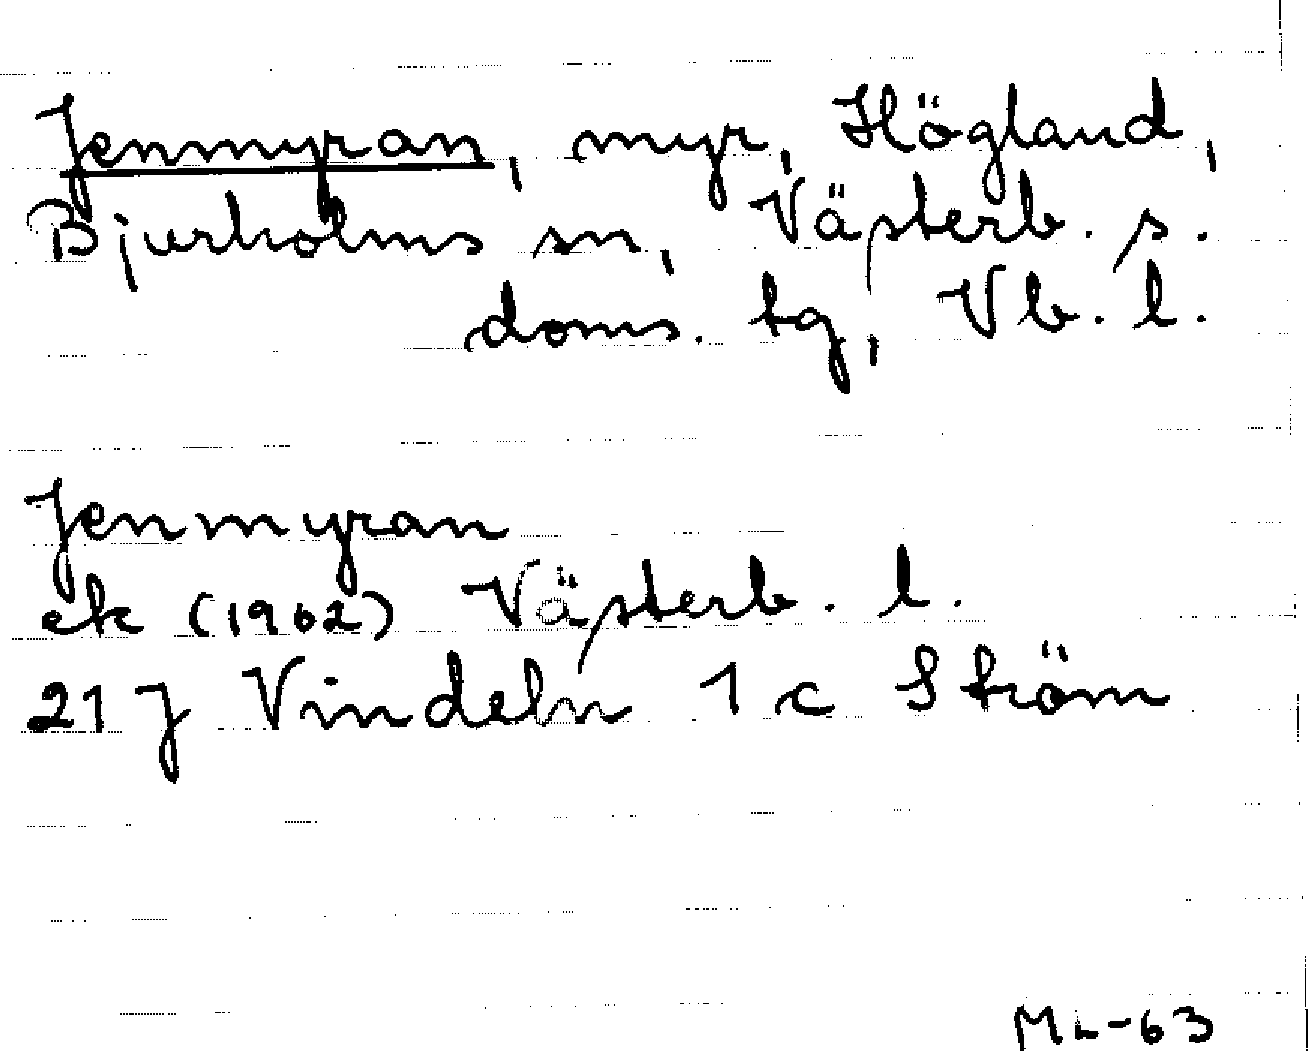 Jenmyran, myr, Högland,
Bjurholms sn, Västerb. s.
doms. tg, Vb. l.
Jenmyran
ek (1962) Västerb. l.
21 J Vindeln 1 c Ström
ML-63